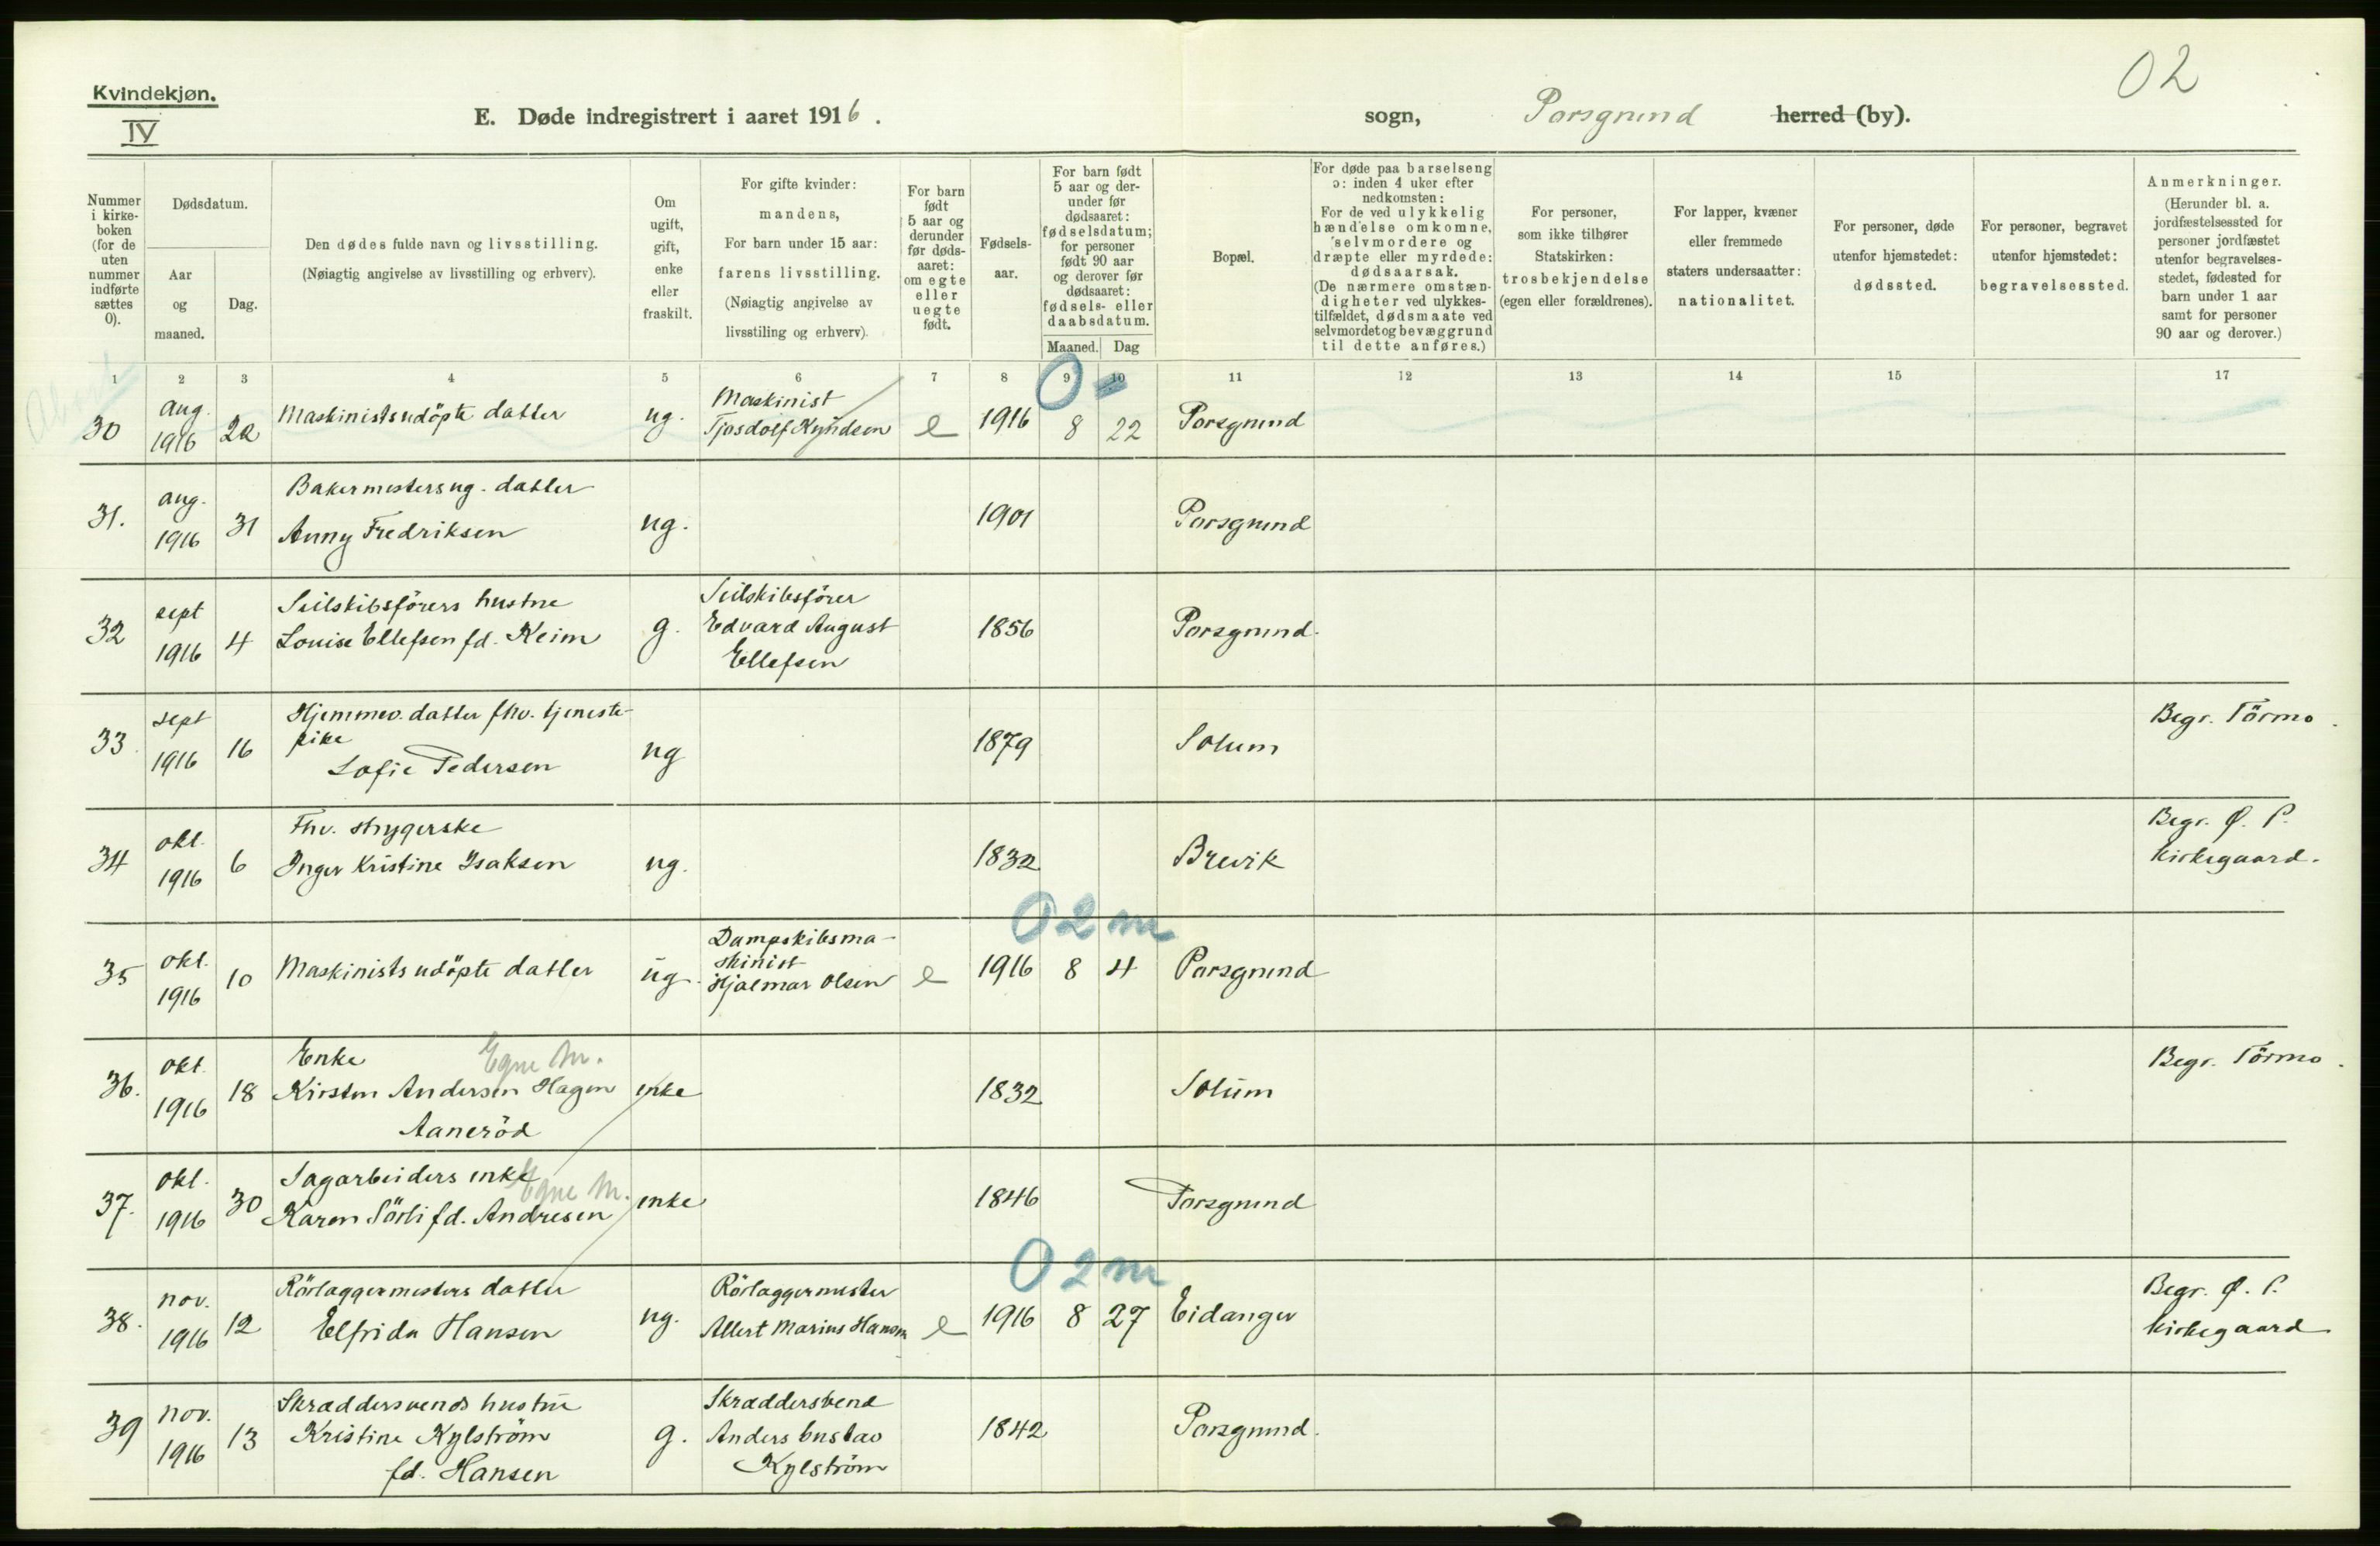 Kvindekjøn.
IV
E. Døde indregistrert i aaret 1916.
sogn, Porsgrund herred (by).
02
Nummer i kirke-boken (for de uten nummer indførte sættes 0).
Dødsdatum.
Aar og maaned.
Dag.
Den dødes fulde navn og livsstilling.
(Nøiagtig angivelse av livsstilling og erhverv).
Om ugift, gift, enke eller fraskilt.
For gifte kvinder: mandens,
For barn under 15 aar: farens livsstilling.
(Nøiagtig angivelse av livsstiling og erhverv).
For barn født 5 aar og derunder før døds-aaret: om egte eller uegte født.
Fødsels-aar.
For barn født 5 aar og der-under før dødsaaret: fødselsdatum; for personer født 90 aar og derover før dødsaaret: fødsels- eller daabsdatum.
Maaned. Dag
Bopæl.
For døde paa barselseng ɔ: inden 4 uker efter nedkomsten:
For de ved ulykkelig hændelse omkomne, selvmordere og dræpte eller myrdede: dødsaarsak.
(De nærmere omstæn-digheter ved ulykkes-tilfældet, dødsmaate ved selvmordet og bevæggrund til dette anføres.)
For personer, som ikke tilhører Statskirken: trosbekjendelse (egen eller forældrenes).
For lapper, kvæner eller fremmede staters undersaatter: nationalitet.
For personer, døde utenfor hjemstedet: dødssted.
For personer, begravet utenfor hjemstedet: begravelsessted.
Anmerkninger.
(Herunder bl. a. jordfæstelsessted for personer jordfæstet utenfor begravelses-stedet, fødested for barn under 1 aar samt for personer 90 aar og derover.)
1 2 3 4 5 6 7 8 9 10 11 12 13 14 15 17
0
30 aug. 1916 22 Maskinists udöpte datter ug. Maskinist Kyndsen e 1916 8 22 Porsgrund
31. aug. 1916 31 Bakermesters ug. datter Anny Fredriksen ug. 1901 Porsgrund
32 sept 1916 4 Seilskibsförers hustru Louise Ellefsen fd. Keim g. Seilskibsförer Edvard August Ellefsen 1856 Porsgrund.
33 sept 1916 16 Hjemmev. datter fhv. tjeneste-pike Sofie Pedersen ug 1879 Solum Begr. Törmo.
34 okt. 1916 6 Fhv. strygerske Inger Kristine Isaksen ug. 1832 Brevik Begr. Ø. P. kirkegaard.
0 2 m
35 okt. 1916 10 Maskinists udöpte datter ug. Dampskibsma-skinist Hjalmar Olsen e 1916 8 4 Porsgrund
36. okt. 1916 18 Enke Egne M. Kirsten Andersen Hagen Aaneröd enke 1832 Solum Begr. Törmo.
37. okt. 1916 30 Sagarbeiders enke Egne M. Karen Sörli fd. Andresen enke 1846 Porsgrund
0 2 m
38. nov. 1916 12 Rörlæggermesters datter Elfrida Hansen ug. Rörlæggermester Albert Marius Hansen e 1916 8 27 Eidanger Begr. Ø. P. kirkegaard
39 nov. 1916 13 Skræddersvends hustru Kristine Kylström fd. Hansen g. Skræddersvend Anders Gustav Kylström 1842 Porsgrund.